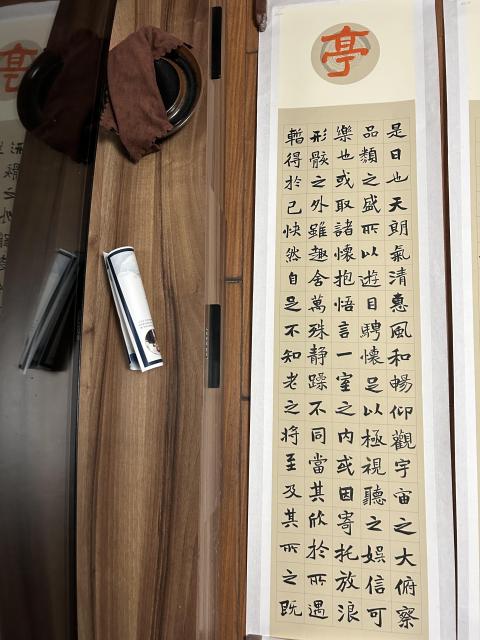 亭
是日也天朗氣清惠風和暢仰觀宇宙之大俯察
品類之盛所以遊目騁懷足以極視聽之娱信可
樂也或取諸懷抱悟言一室之内或因寄托放浪
形骸之外雖趣舍萬殊静躁不同當其欣於所遇
暫得於己快然自足不知老之将至及其所之既